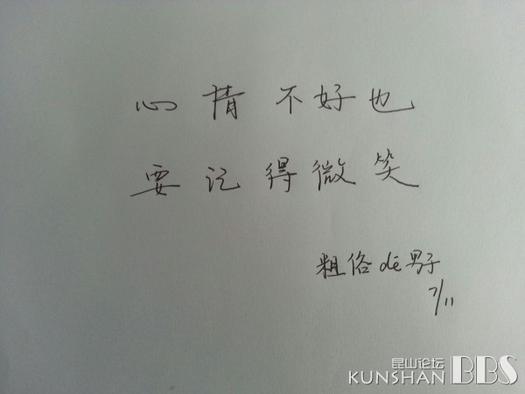 心情不好也
要记得微笑
粗俗dē男子
7/11
昆山论坛
KUNSHAN BBS